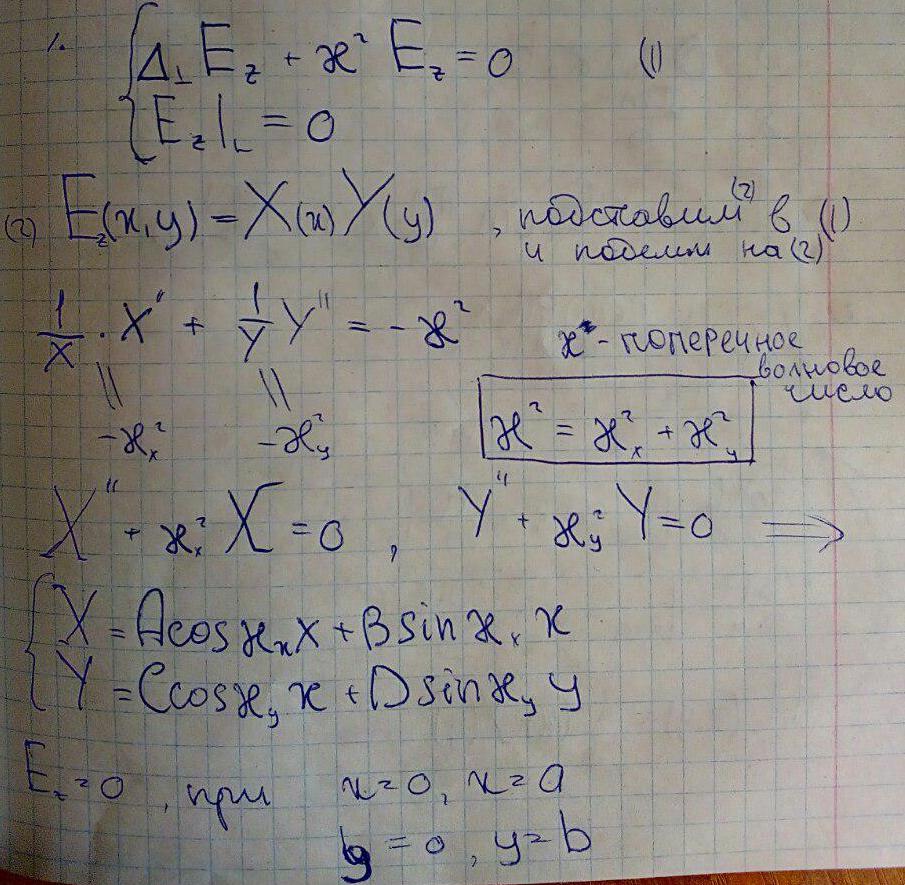 1. { Δ⊥ E_z + ϰ² E_z = 0 (1
E_z|_L = 0
(2) E_z(x,y) = X(x) Y(y) , подставим (2) в (1)
и поделим на (2)
1/X · X'' + 1/Y Y'' = -ϰ²
ϰ - поперечное
волновое
число
|| ||
-ϰ_x² -ϰ_y² ϰ² = ϰ_x² + ϰ_y²
X'' + ϰ_x² X = 0 , Y'' + ϰ_y² Y = 0 ⟹
{ X = A cos ϰ_x x + B sin ϰ_x x
Y = C cos ϰ_y x + D sin ϰ_y y
E_z = 0 , при x = 0, x = a
y = 0 , y = b